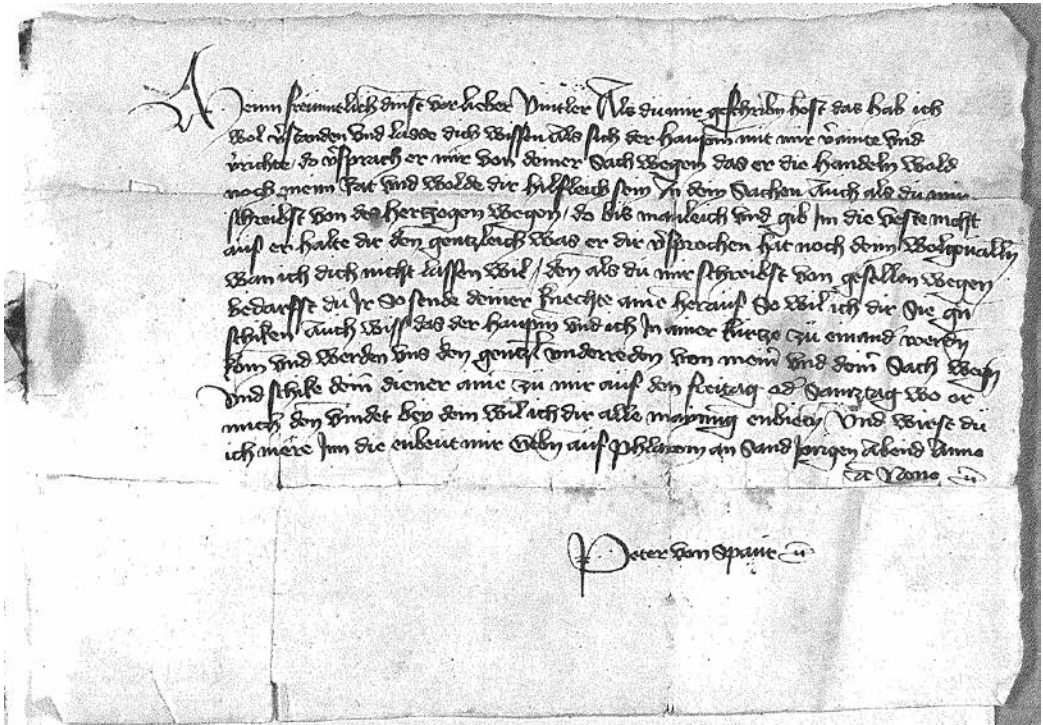 Meinn freuntlich dinst vor lieber Vintler Als du mir geschribn host das hab ich
wol v̄standen vnd lasse dich wissen Als sich der haupm̄ mit mir v̄ainte vnd
v̄richte do v̄sprach er mir von deiner sach wegen das er die handeln wold
noch meim Rat vnd wolde dir hilfleich sein In dem sachen Auch als du mir
schreibst von des hertzogen wegen / do bis manleich vnd gib Im die veste nicht
auf er halte dir den gentzleich was er dir v̄sprochen hat noch deim
wan ich dich nicht lassen wil / den als du mir schreibst von gesellen wegen
bedarfst du Ir So sende deiner knechte aine herauf So wil ich dir Sie
schiken Auch wiss das der haupm̄ vnd ich In ainer kürtze zu einand werdn
kom vnd werden vns den gentzl vnderreden von meīn vnd deīn Sach wegn
Vnd schike deīn diener aine zu mir auf den freitag od Samztag wo er
mich den vindet bey dem wil ich dir alle mainūg enbietn Vnd wirst du
ich mere Inn die enbeut mir Gebn auf Phlawm an Sand Jorigen Abend Anno
Nono
Peter von Spaur